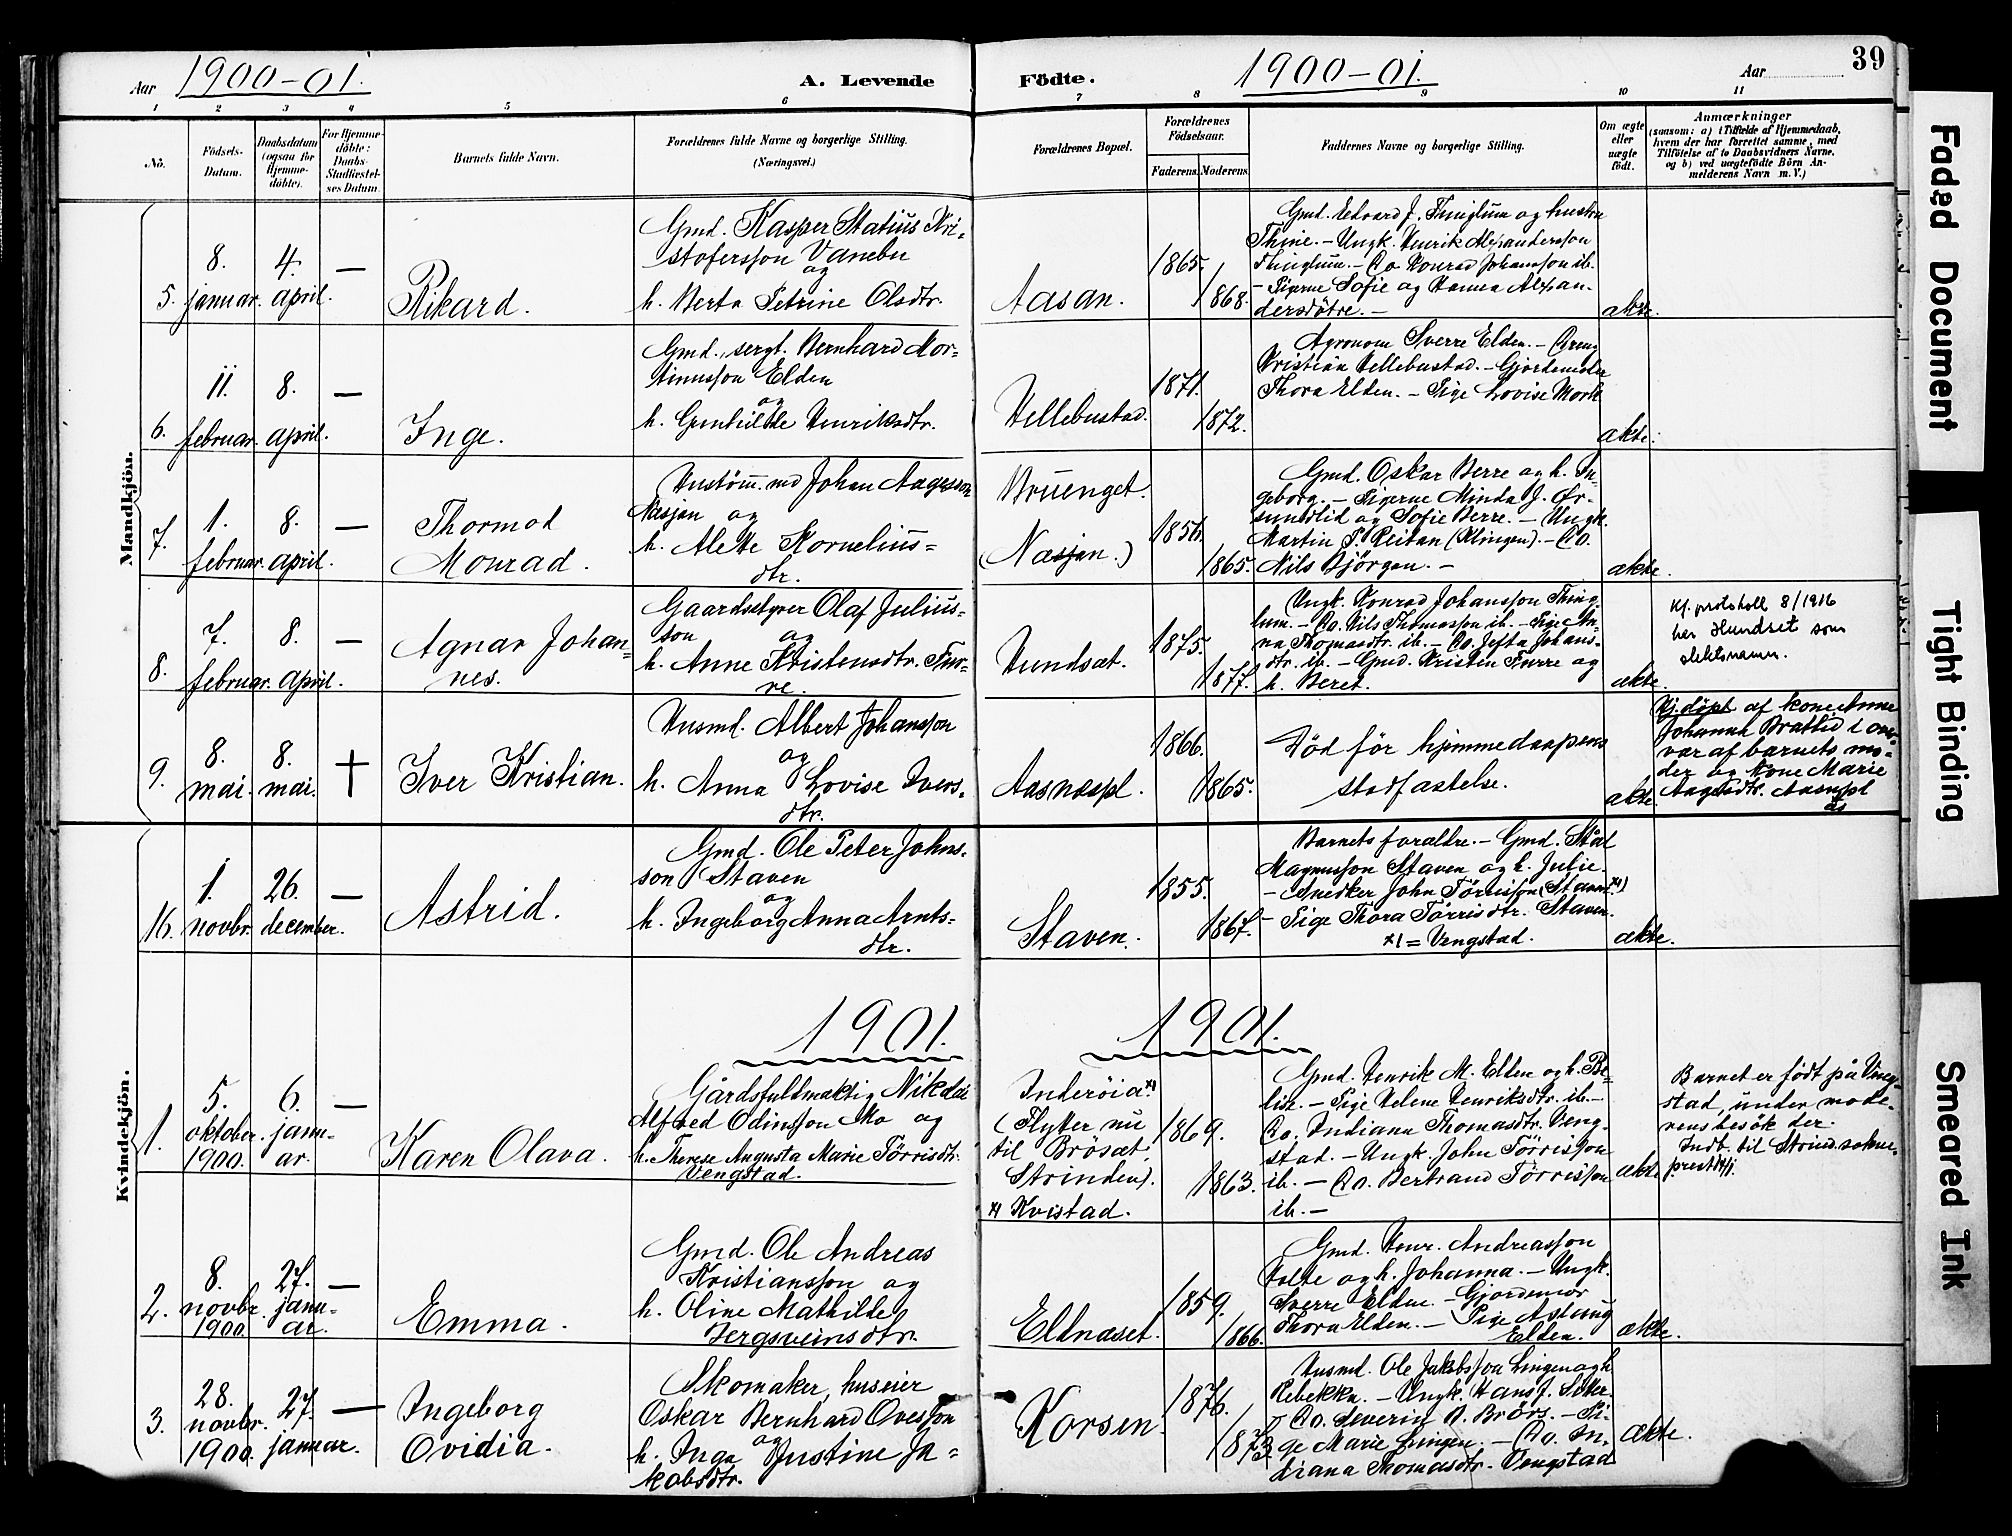 Aar 1900-01. A. Levende Födte. 1900-01. Aar 39
1 2 3 4 5 6 7 8 9 10 11
No. Födsels-Datum. Daabsdatum (ogsaa for Hjemmedöbte). For Hjemmedöbte: Daabs-Stadfæstelses Datum. Barnets fulde Navn. Forældrenes fulde Navne og borgerlige Stilling. (Næringsvei.) Forældrenes Bopæl. Forældrenes Födselsaar. Faderens. Moderens. Faddernes Navne og borgerlige Stilling. Om ægte eller uægte födt. Anmærkninger (saasom: a) i Tilfælde af Hjemmedaab, hvem der har forrettet samme, med Tilföielse af to Daabsvidners Navne, og b) ved uægtefödte Börn Anmelderens Navn m. V.)
Mandkjön.
5. 8. januar. 4. april. —
Rikard.
Gmd. Kasper Statius Kri-
stofersson Vanebu
og
h. Berta Petrine Olsdtr.
Aasan.
1865.
1868.
Gmd. Edvard J. Thinglum og hustru
Thine. – Ungk. Henrik Alexandersson
Thinglum. – Do Konrad Johansson ib.
– Pigerne Sofie og Hanna Alexan-
dersdötre. –
ækte.
6. 11. februar. 8. april. —
Inge.
Gmd., sergt. Bernhard Mor-
tinusson Elden
og
h. Gunhilde Henriksdtr.
Hellebustad.
1871.
1872.
Agronom Sverre Elden. –
Kristian Hellebustad. – Gjordemoder
Thora Elden. – Pige Lovise Mork
ækte.
7. 1. februar. 8. april. —
Thormod
Monrad.
Hustöm. md Johan Aagesson
Næsjan og
h. Alette Kornelius-
dtr.
Bruenget.
(Næsjan.)
1856.
1865.
Gmd. Oskar Berre og h. In-
geborg. – Pigerne Minda J. Ör-
sundlid og Sofie Berre. – Ungk.
Martin P. Reitan (Klingen). – Do.
Nils Björgan. –
ækte.
8. 7. februar. 8. april. —
Agnar Johan-
nes.
Gaardsstyrer Olaf Julius-
son og
h. Anne Kristensdtr. Fur-
re.
Hundsæt.
1875.
1877.
Ungk. Konrad Johansson Thing-
lum. – Do. Nils Thomasson ib. – Pige An-
na Thomasdtr. ib. – Do. Jefta Johans-
dtr. ib. – Gmd. Kristen Furre og
h. Beret.
ækte.
Kf. protokoll 8/1916
har Hundset som
slektsnavn.
9. 8. mai. 8. mai. †
Iver Kristian.
Husmd. Albert Johansson
og
h. Anna Lovise Ivers-
dtr.
Aasnæspl.
1866.
1865.
Död för hjemmedaapens
stadfæstelse.
ækte.
Hj. döpt af kone Anne
Johanna Brattid i over-
vær af barnets mo-
der og kone Marie
Aagesdtr. Aasnæspl
Kvindekjön.
16. 1. novbr. 26. december. —
Astrid.
Gmd. Ole Peter Johns-
son Staven
og
h. Ingeborg Anna Arnts-
dtr.
Staven.
1855.
1867.
Barnets forældre. – Gmd. Ståd
Magnusson Staven og h. Julie.
– Snedker John Törrisson (Staven x))
– Pige Thora Törrisdtr. Staven.
x) = Vengstad.
ækte.
1901. 1901.
1. 5. oktober. 1900. 6. janu-
ar. —
Karen Olava.
Gårdsfuldmæktig Nikolai
Alfred Odinsson Mo og
h. Therese Augusta Marie Törrisdtr.
Vengstad.
Inderöia x)
(Flytter nu
til Brösæt,
Strinden).
x) Kvistad.
1869.
1863.
Gmd. Henrik M. Elden og h. Be-
lise. – Pige Helene Henriksdtr. ib. –
Do. Indiana Thomasdtr. Veng-
stad. – Ungk. John Törrisson
ib. – Do. Bertrand Törrisson
ib. –
ækte
Barnet er født på Veng-
stad, under mode-
rens besök der.
Indb. til Strind. sokne-
prest
2. 8. novbr. 1900. 27. janu-
ar. —
Emma.
Gmd. Ole Andreas
Kristiansson og
h. Oline Mathilde
Bergsveinsdtr.
Eldnæset.
1859.
1866.
Gmd. Henr. Andreasson
Holte og h. Johanna. – Ungk.
Sverre Elden. – Gjordemor
Thora Elden. – Pige Astrung
Elden.
ækte.
3. 28. novbr. 1900. 27. januar. —
Ingeborg
Ovidia.
Skomaker, huseier
Oskar Bernhard Ovesson
og
h. Inga Justine Ja-
kobsdtr.
Korsen.
1876.
1873.
Husmd. Ole Jakobsson Lingen og h
Rebekka. – Ungk. Hans J. Sæter.
Do. Severin A. Brörs. – Pi-
ge Marie Lingen. – Do. In-
diana Thomasdtr. Vengstad
ækte.
Faded Document
Tight Binding
Smeared Ink